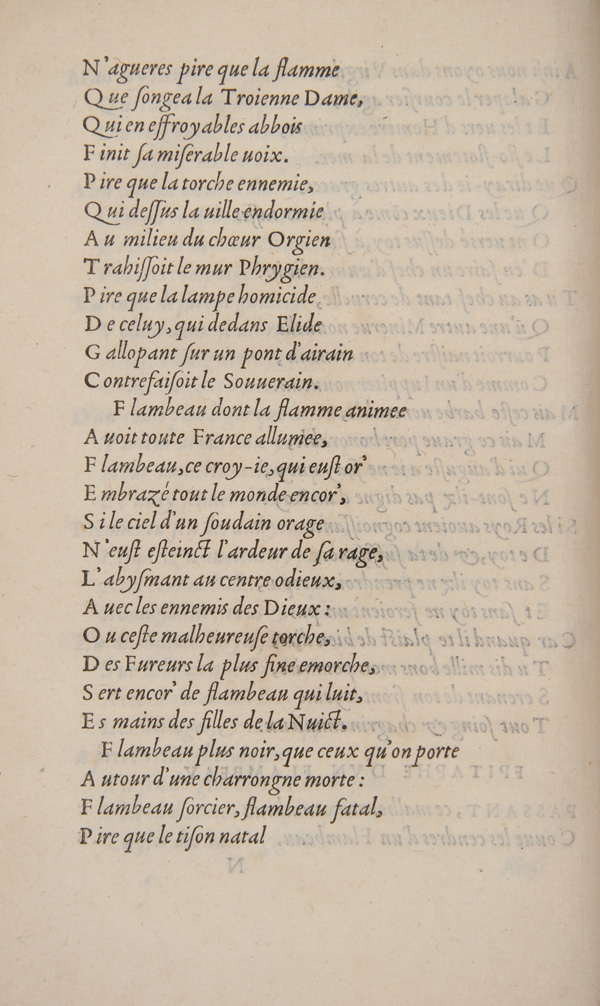 N'agueres pire que la flamme
Que ſongea la Troienne Dame,
Qui en effroyables abbois
Finit ſa miſerable uoix.
Pire que la torche ennemie,
Qui deſſus la uille endormie
Au milieu du chœur Orgien
Trahiſſoit le mur Phrygien.
Pire que la lampe homicide
De celuy, qui dedans Elide
Gallopant ſur un pont d'airain
Contrefaiſoit le Souuerain.
Flambeau dont la flamme animee
Auoit toute France allumee,
Flambeau, ce croy-ie, qui euſt or'
Embrazé tout le monde encor',
Si le ciel d'un ſoudain orage
N'euſt eſteinct l'ardeur de ſa rage,
L'abyſmant au centre odieux,
Auec les ennemis des Dieux:
Ou ceſte malheureuſe torche,
Des Fureurs la plus fine emorche,
Sert encor' de flambeau qui luit,
Es mains des filles de la Nuict.
Flambeau plus noir, que ceux qu'on porte
Autour d'une charrongne morte:
Flambeau ſorcier, flambeau fatal,
Pire que le tiſon natal